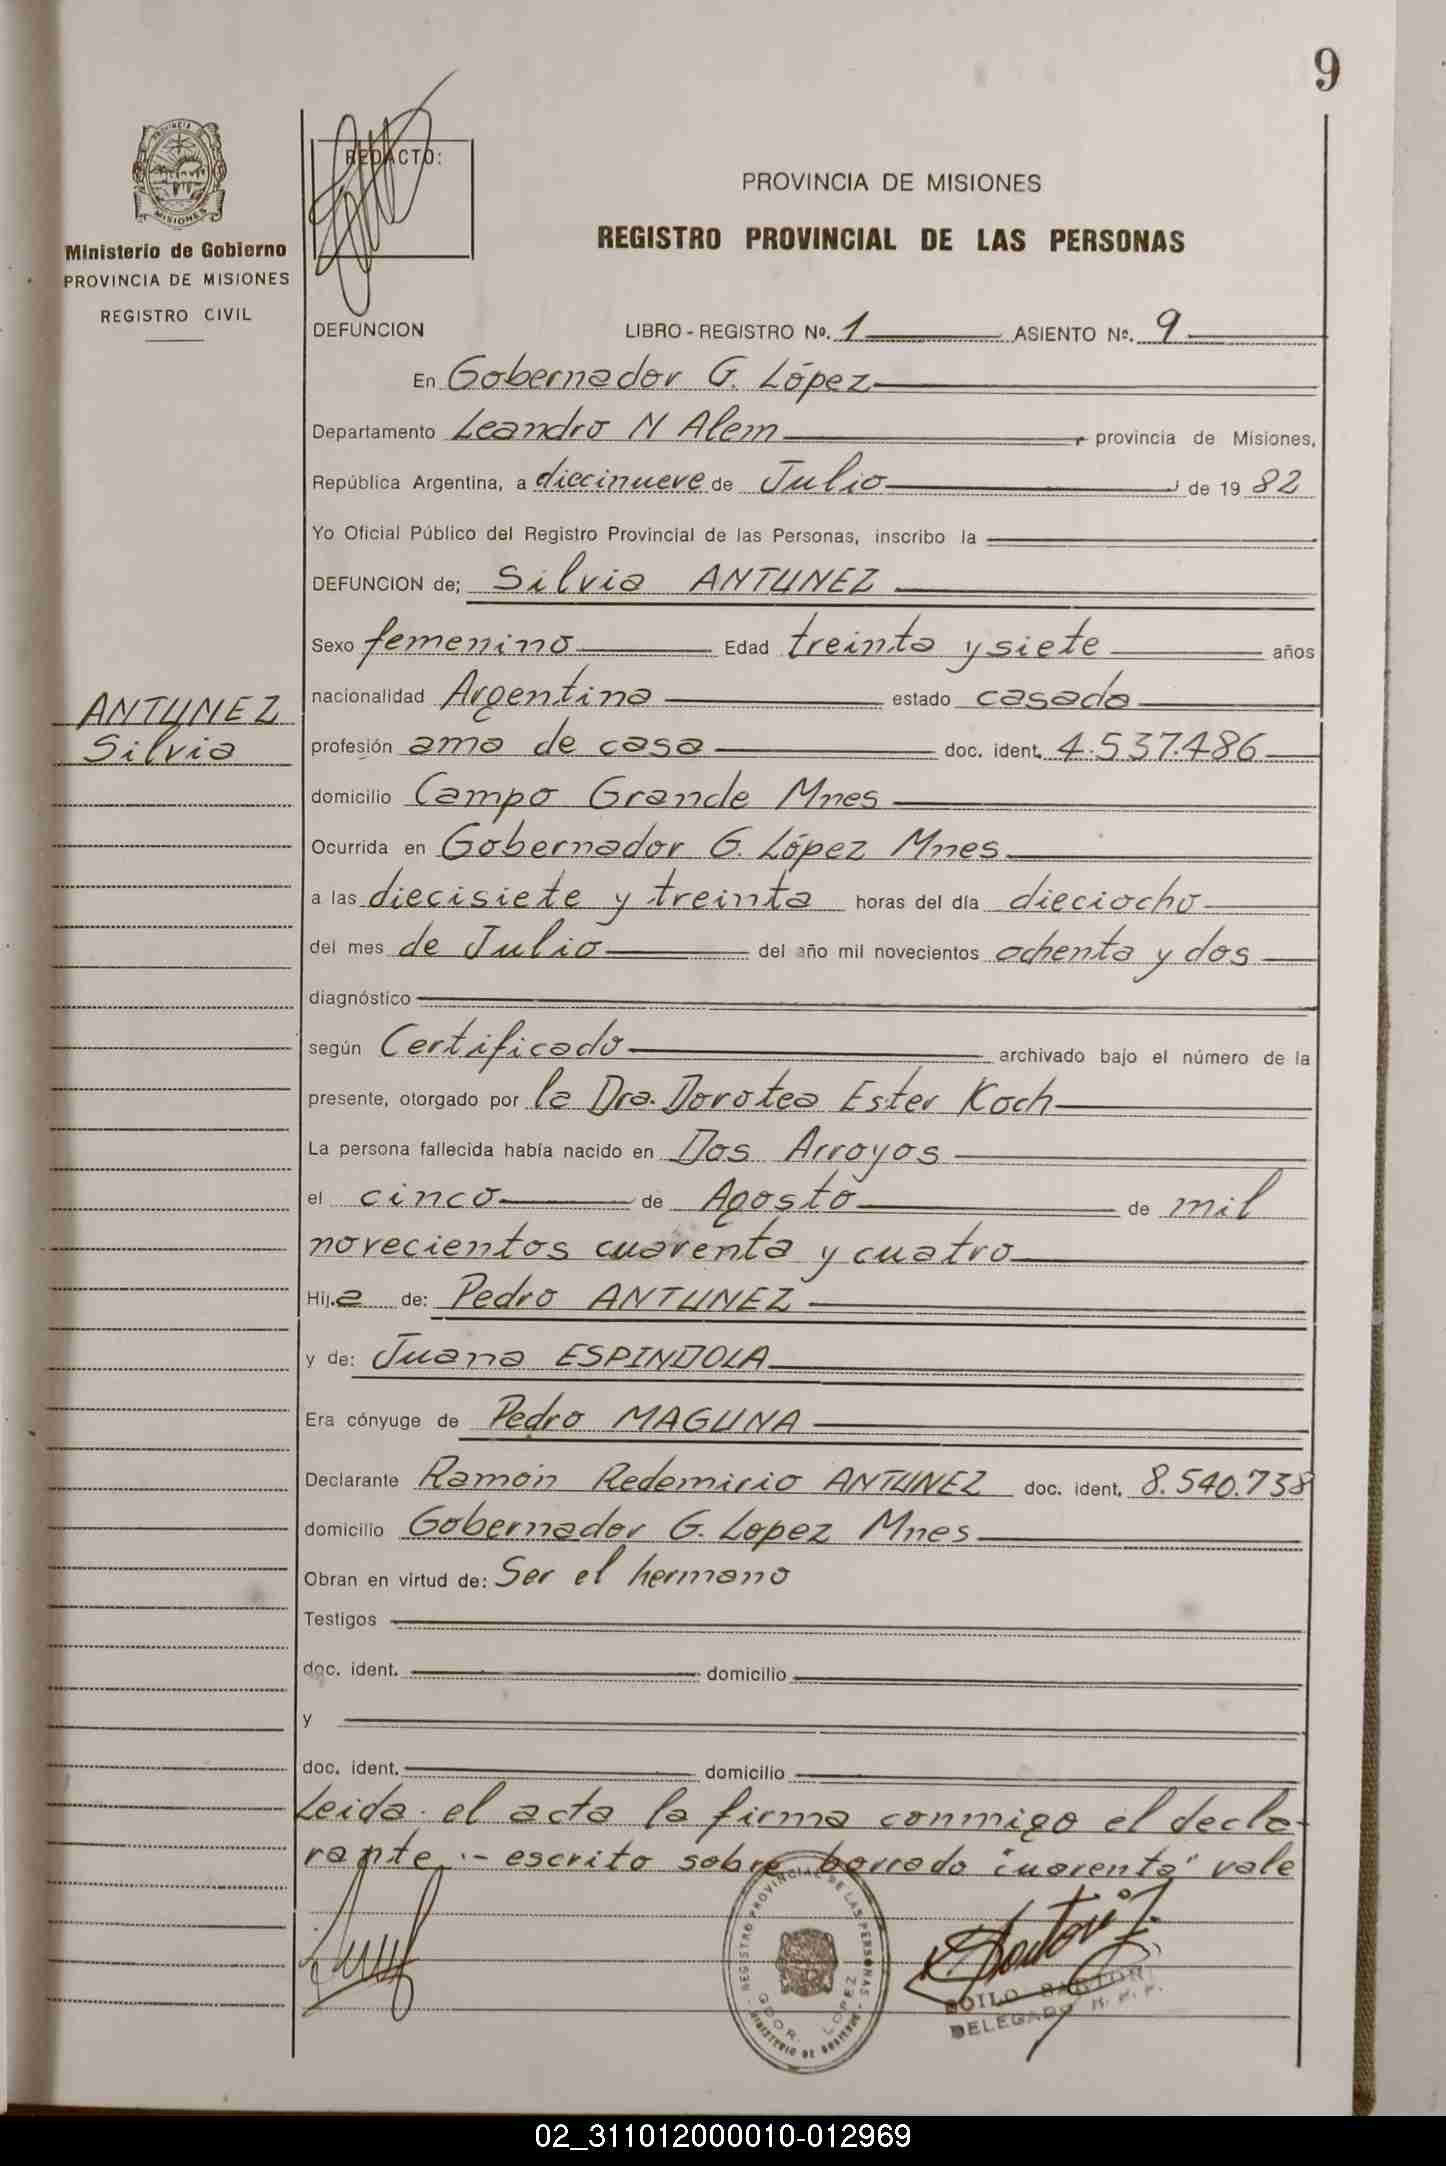 9
PROVINCIA
MISIONES
Ministerio de Gobierno
PROVINCIA DE MISIONES
REGISTRO CIVIL
REDACTO:
PROVINCIA DE MISIONES
REGISTRO PROVINCIAL DE LAS PERSONAS
DEFUNCION LIBRO - REGISTRO Nº. 1 ASIENTO Nº. 9
En Gobernador G. López
Departamento Leandro N Alem, provincia de Misiones,
República Argentina, a diecinueve de Julio de 19 82
Yo Oficial Público del Registro Provincial de las Personas, inscribo la
DEFUNCION de; Silvia ANTUNEZ
Sexo femenino Edad treinta y siete años
ANTUNEZ
Silvia
nacionalidad Argentina estado casada
profesión ama de casa doc. ident. 4.537.486
domicilio Campo Grande Mnes
Ocurrida en Gobernador G. López Mnes
a las diecisiete y treinta horas del día dieciocho
del mes de Julio del año mil novecientos ochenta y dos
diagnóstico
según Certificado archivado bajo el número de la
presente, otorgado por la Dra. Dorotea Ester Koch
La persona fallecida había nacido en Dos Arroyos
el cinco de Agosto de mil
novecientos cuarenta y cuatro
Hij.a de: Pedro ANTUNEZ
y de: Juana ESPINDOLA
Era cónyuge de Pedro MAGUNA
Declarante Ramón Redemirio ANTUNEZ doc. ident. 8.540.738
domicilio Gobernador G. Lopez Mnes
Obran en virtud de: Ser el hermano
Testigos
doc. ident. domicilio
y
doc. ident. domicilio
Leida el acta la firma conmigo el decla-
rante.- escrito sobre borrado "cuarenta" vale
REGISTRO PROVINCIAL DE LAS PERSONAS
GDOR. LOPEZ
MINISTERIO DE GOBIERNO
ZOILO SARTORI
DELEGADO R. P. P.
02_311012000010-012969